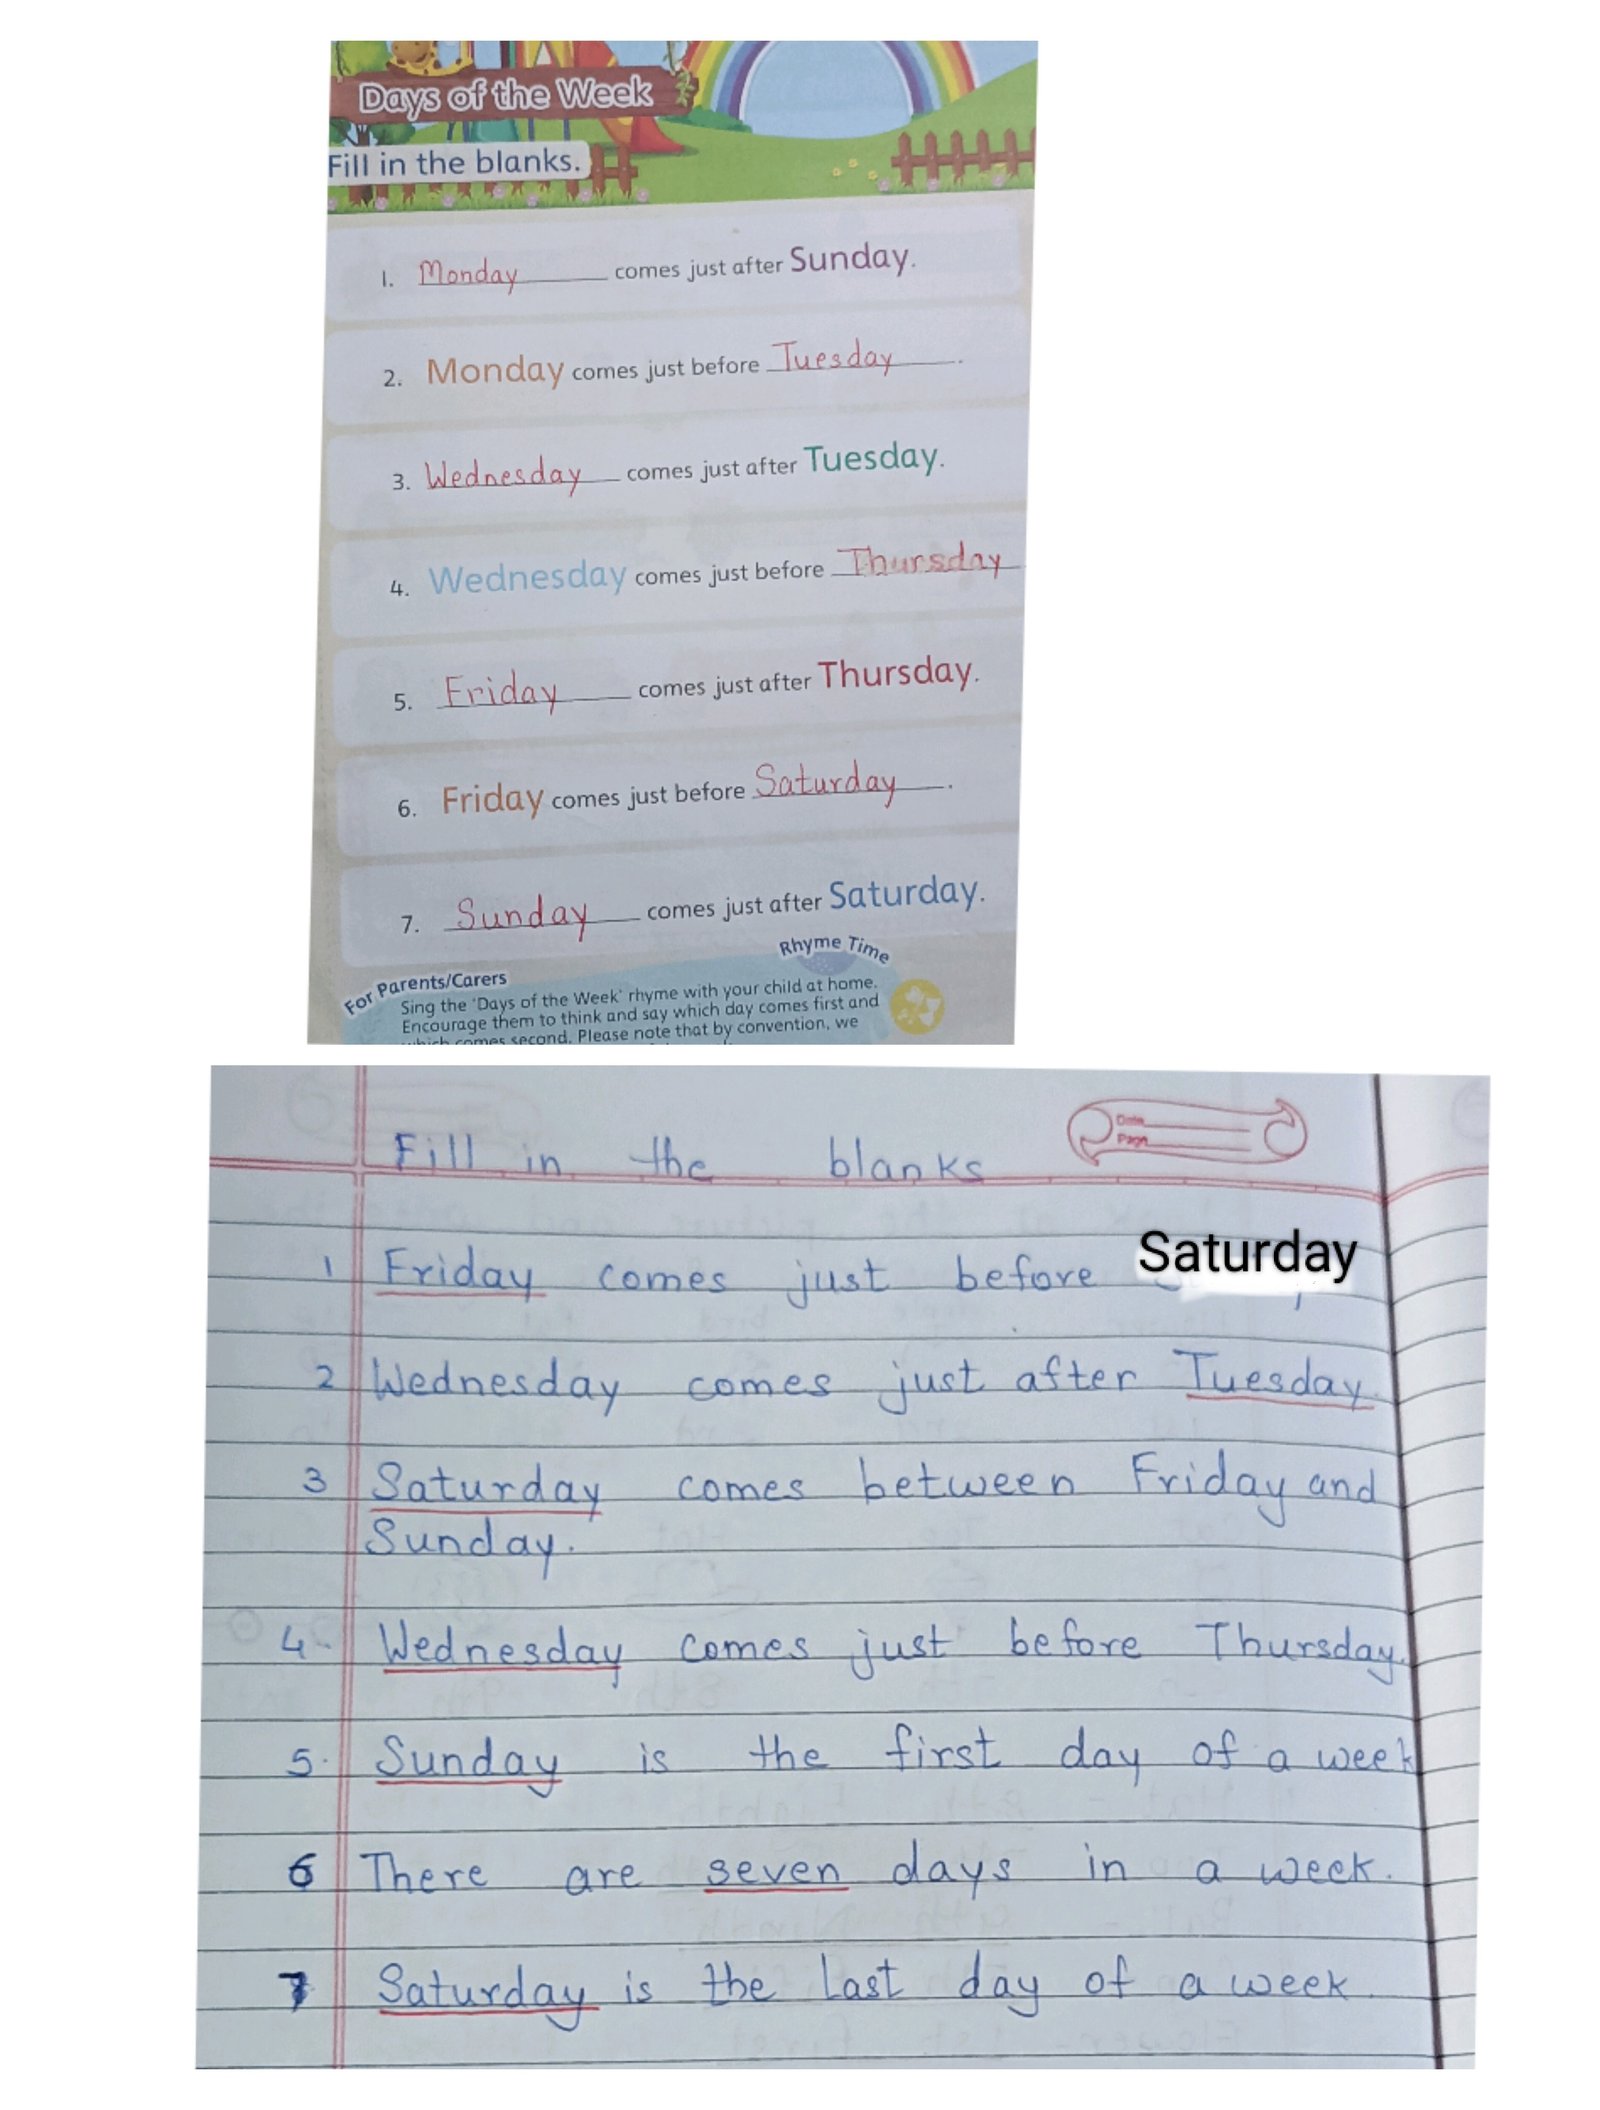 Days of the Week
Fill in the blanks.
1. Monday comes just after Sunday.
2. Monday comes just before Tuesday.
3. Wednesday comes just after Tuesday.
4. Wednesday comes just before Thursday
5. Friday comes just after Thursday.
6. Friday comes just before Saturday.
7. Sunday comes just after Saturday.
Rhyme Time
For Parents/Carers
Sing the 'Days of the Week' rhyme with your child at home.
Encourage them to think and say which day comes first and
which comes second. Please note that by convention, we
Date
Page
Fill in the blanks
1 Friday comes just before Saturday
2 Wednesday comes just after Tuesday.
3 Saturday comes between Friday and
Sunday.
4. Wednesday comes just before Thursday.
5. Sunday is the first day of a week
6 There are seven days in a week.
7 Saturday is the last day of a week.